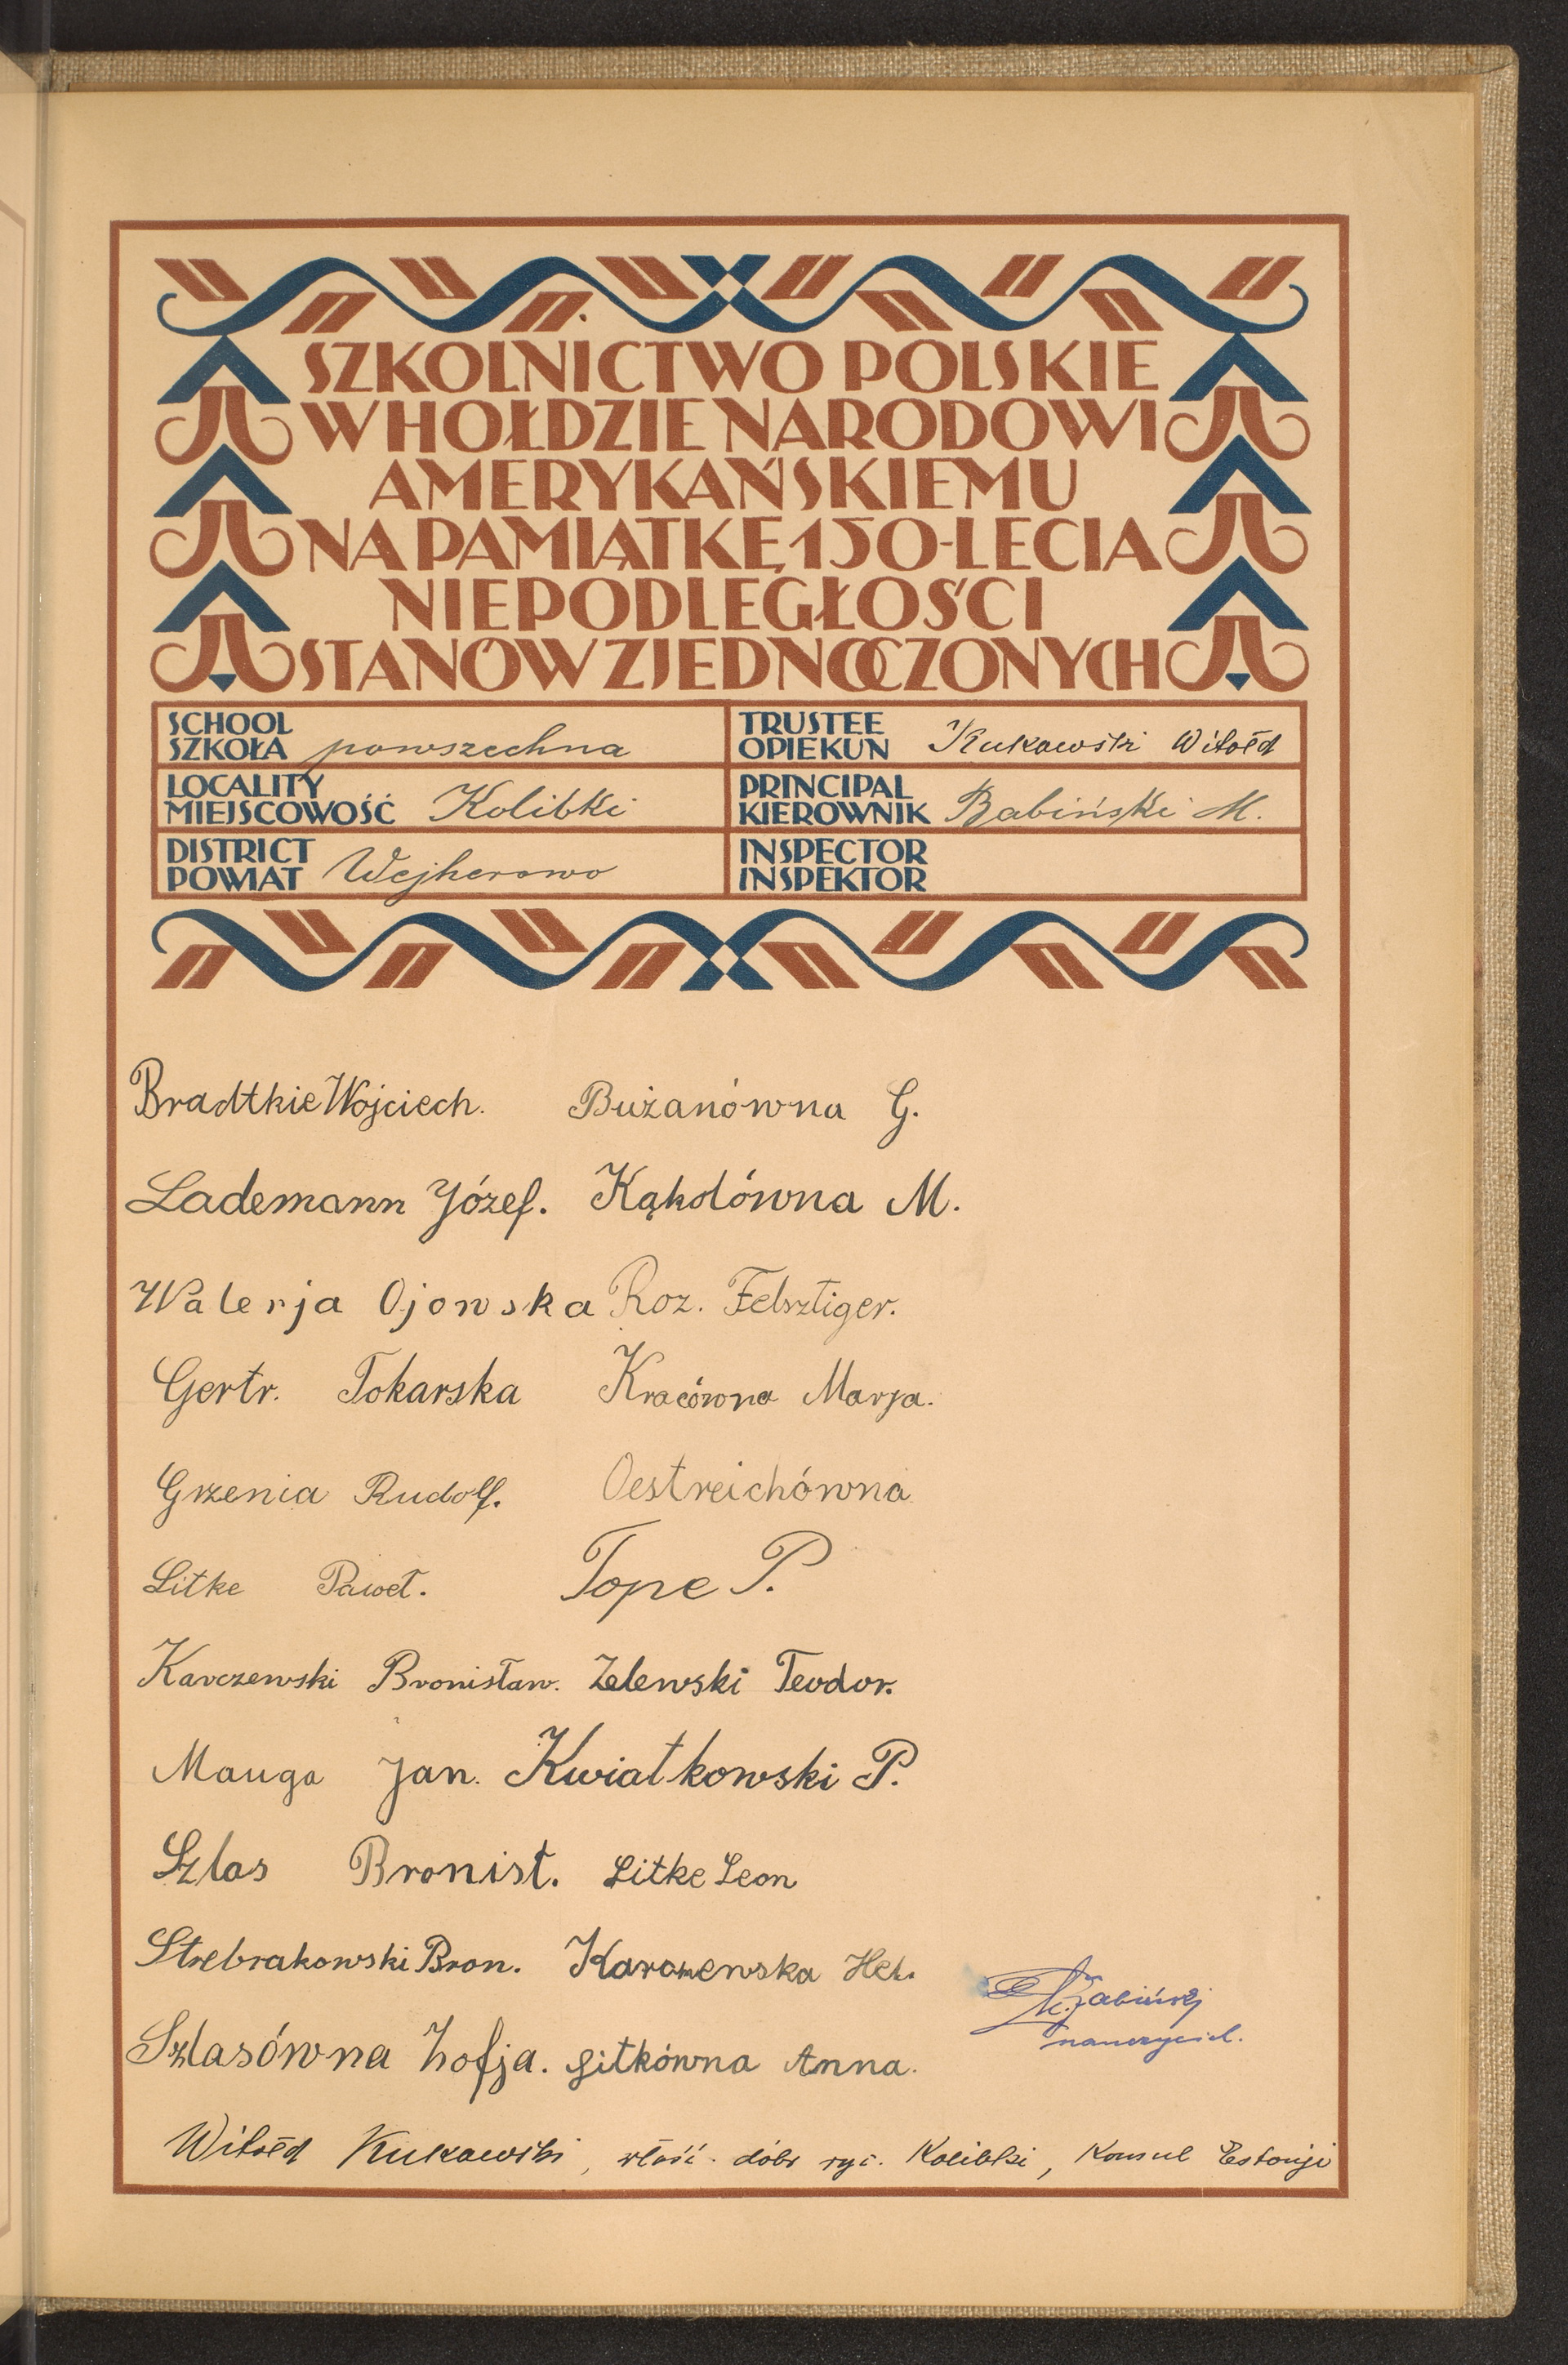 SZKOLNICTWO POLSKIE
W HOŁDZIE NARODOWI
AMERYKAŃSKIEMU
NA PAMIĄTKĘ 150-LECIA
NIEPODLEGŁOŚCI
STANÓW ZJEDNOCZONYCH
SCHOOL
SZKOŁA powszechna
TRUSTEE
OPIEKUN Kukowski Witołd
LOCALITY
MIEJSCOWOŚĆ Kolibki
PRINCIPAL
KIEROWNIK Babiński M.
DISTRICT
POWIAT Wejherowo
INSPECTOR
INSPEKTOR
Bradtkie Wojciech. Bużanówna G.
Lademann Józef. Kąkolówna M.
Walerja Ojowska Roz. Felsztiger.
Gertr. Tokarska Kracówna Marja.
Grzenia Rudolf. Oestreichówna
Litke Paweł. Tope P.
Karczewski Bronisław. Zelewski Teodor.
Mauga Jan. Kwiatkowski P.
Szlas Bronisł. Litke Leon
Strebrakowski Bron. Karczewska Hel.
Szlasówna Zofja. Litkówna Anna.
M. Babiński
nauczyciel.
Witołd Kukowski, włość. dóbr ryc. Kolibki, Konsul Estonji